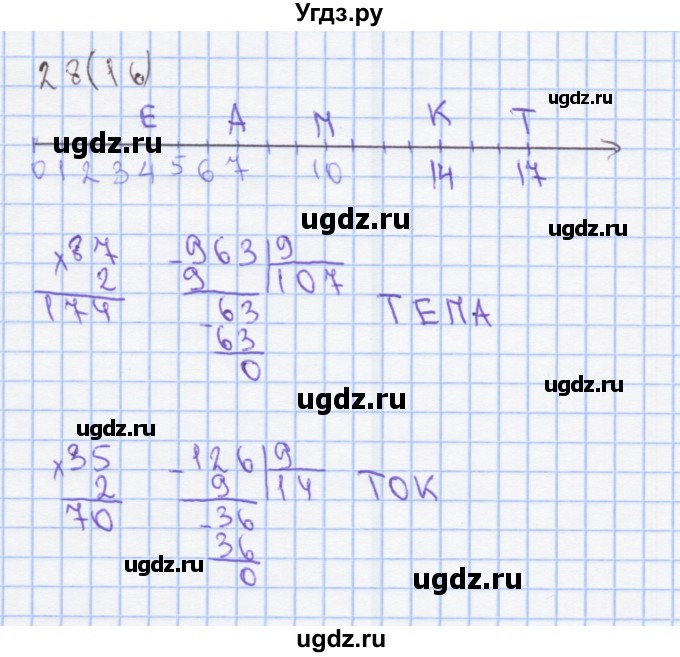 Угдз.ру
28(16)
ugdz.ru
Е А М К Т
ugdz.ru
0 1 2 3 4 5 6 7 10 14 17
ugdz.ru
ugdz.ru
× 87
2
174
- 963 | 9
9 107
- 63
63
0
ТЕМА
ugdz.ru
ugdz.ru
ugdz.ru
× 35
2
70
- 126 | 9
9 14
- 36
36
0
ТОК
ugdz.ru
ugdz.ru
ugdz.ru
ugdz.ru